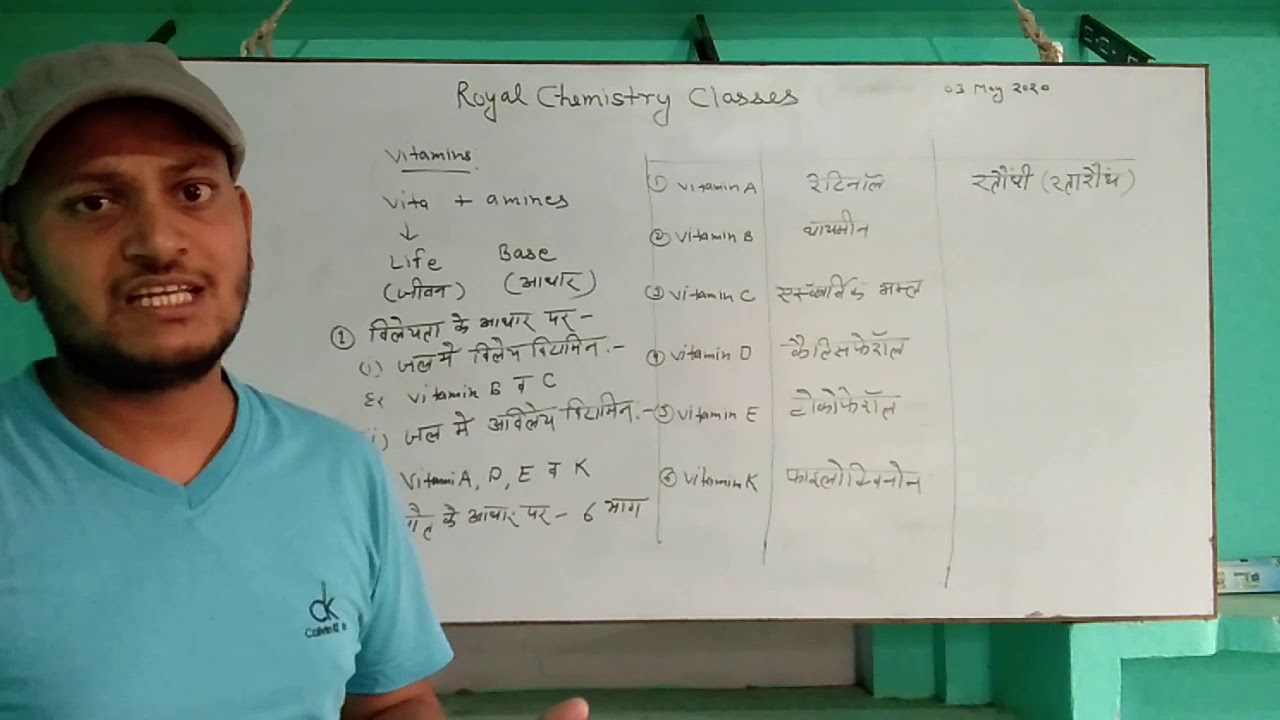 Royal Chemistry Classes
03 May 2020
Vitamins:
Vita + amines
↓
Life Base
(जीवन) (आधार)
① विलेयता के आधार पर -
(i) जल मे विलेय विटामिन :-
Ex Vitamin B व C
जल मे अविलेय विटामिन :-
Vitami A, D, E व K
के आधार पर - 6 भाग
① Vitamin A रेटिनॉल रतौंधी (रतारौंध)
② Vitamin B थायमीन
③ Vitamin C एस्कॉर्बिक अम्ल
④ Vitamin D कैल्सिफेरॉल
⑤ Vitamin E टोकोफेरॉल
⑥ Vitamin K फाइलोक्विनोन
ck
Calvin